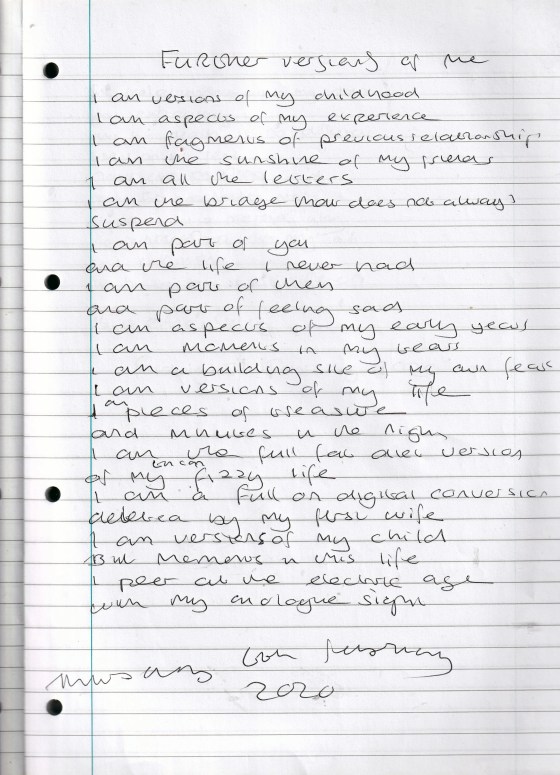 Further versions of me
I am versions of my childhood
I am aspects of my experience
I am fragments of previous relationship
I am the sunshine of my friends
I am all the letters
I am the bridge that does not always
suspend
I am part of you
and the life I never had
I am part of them
and part of feeling sad
I am aspects of my early years
I am moments in my tears
I am a building site of my own fears
I am versions of my life
I am pieces of treasure
and minutes in the night
I am the full fat diet version
of my fizzy life
I am a full on digital conversion
deleted by my first wife
I am versions of my child
But moments in this life
I peer at the electric age
with my analogue sight
2020